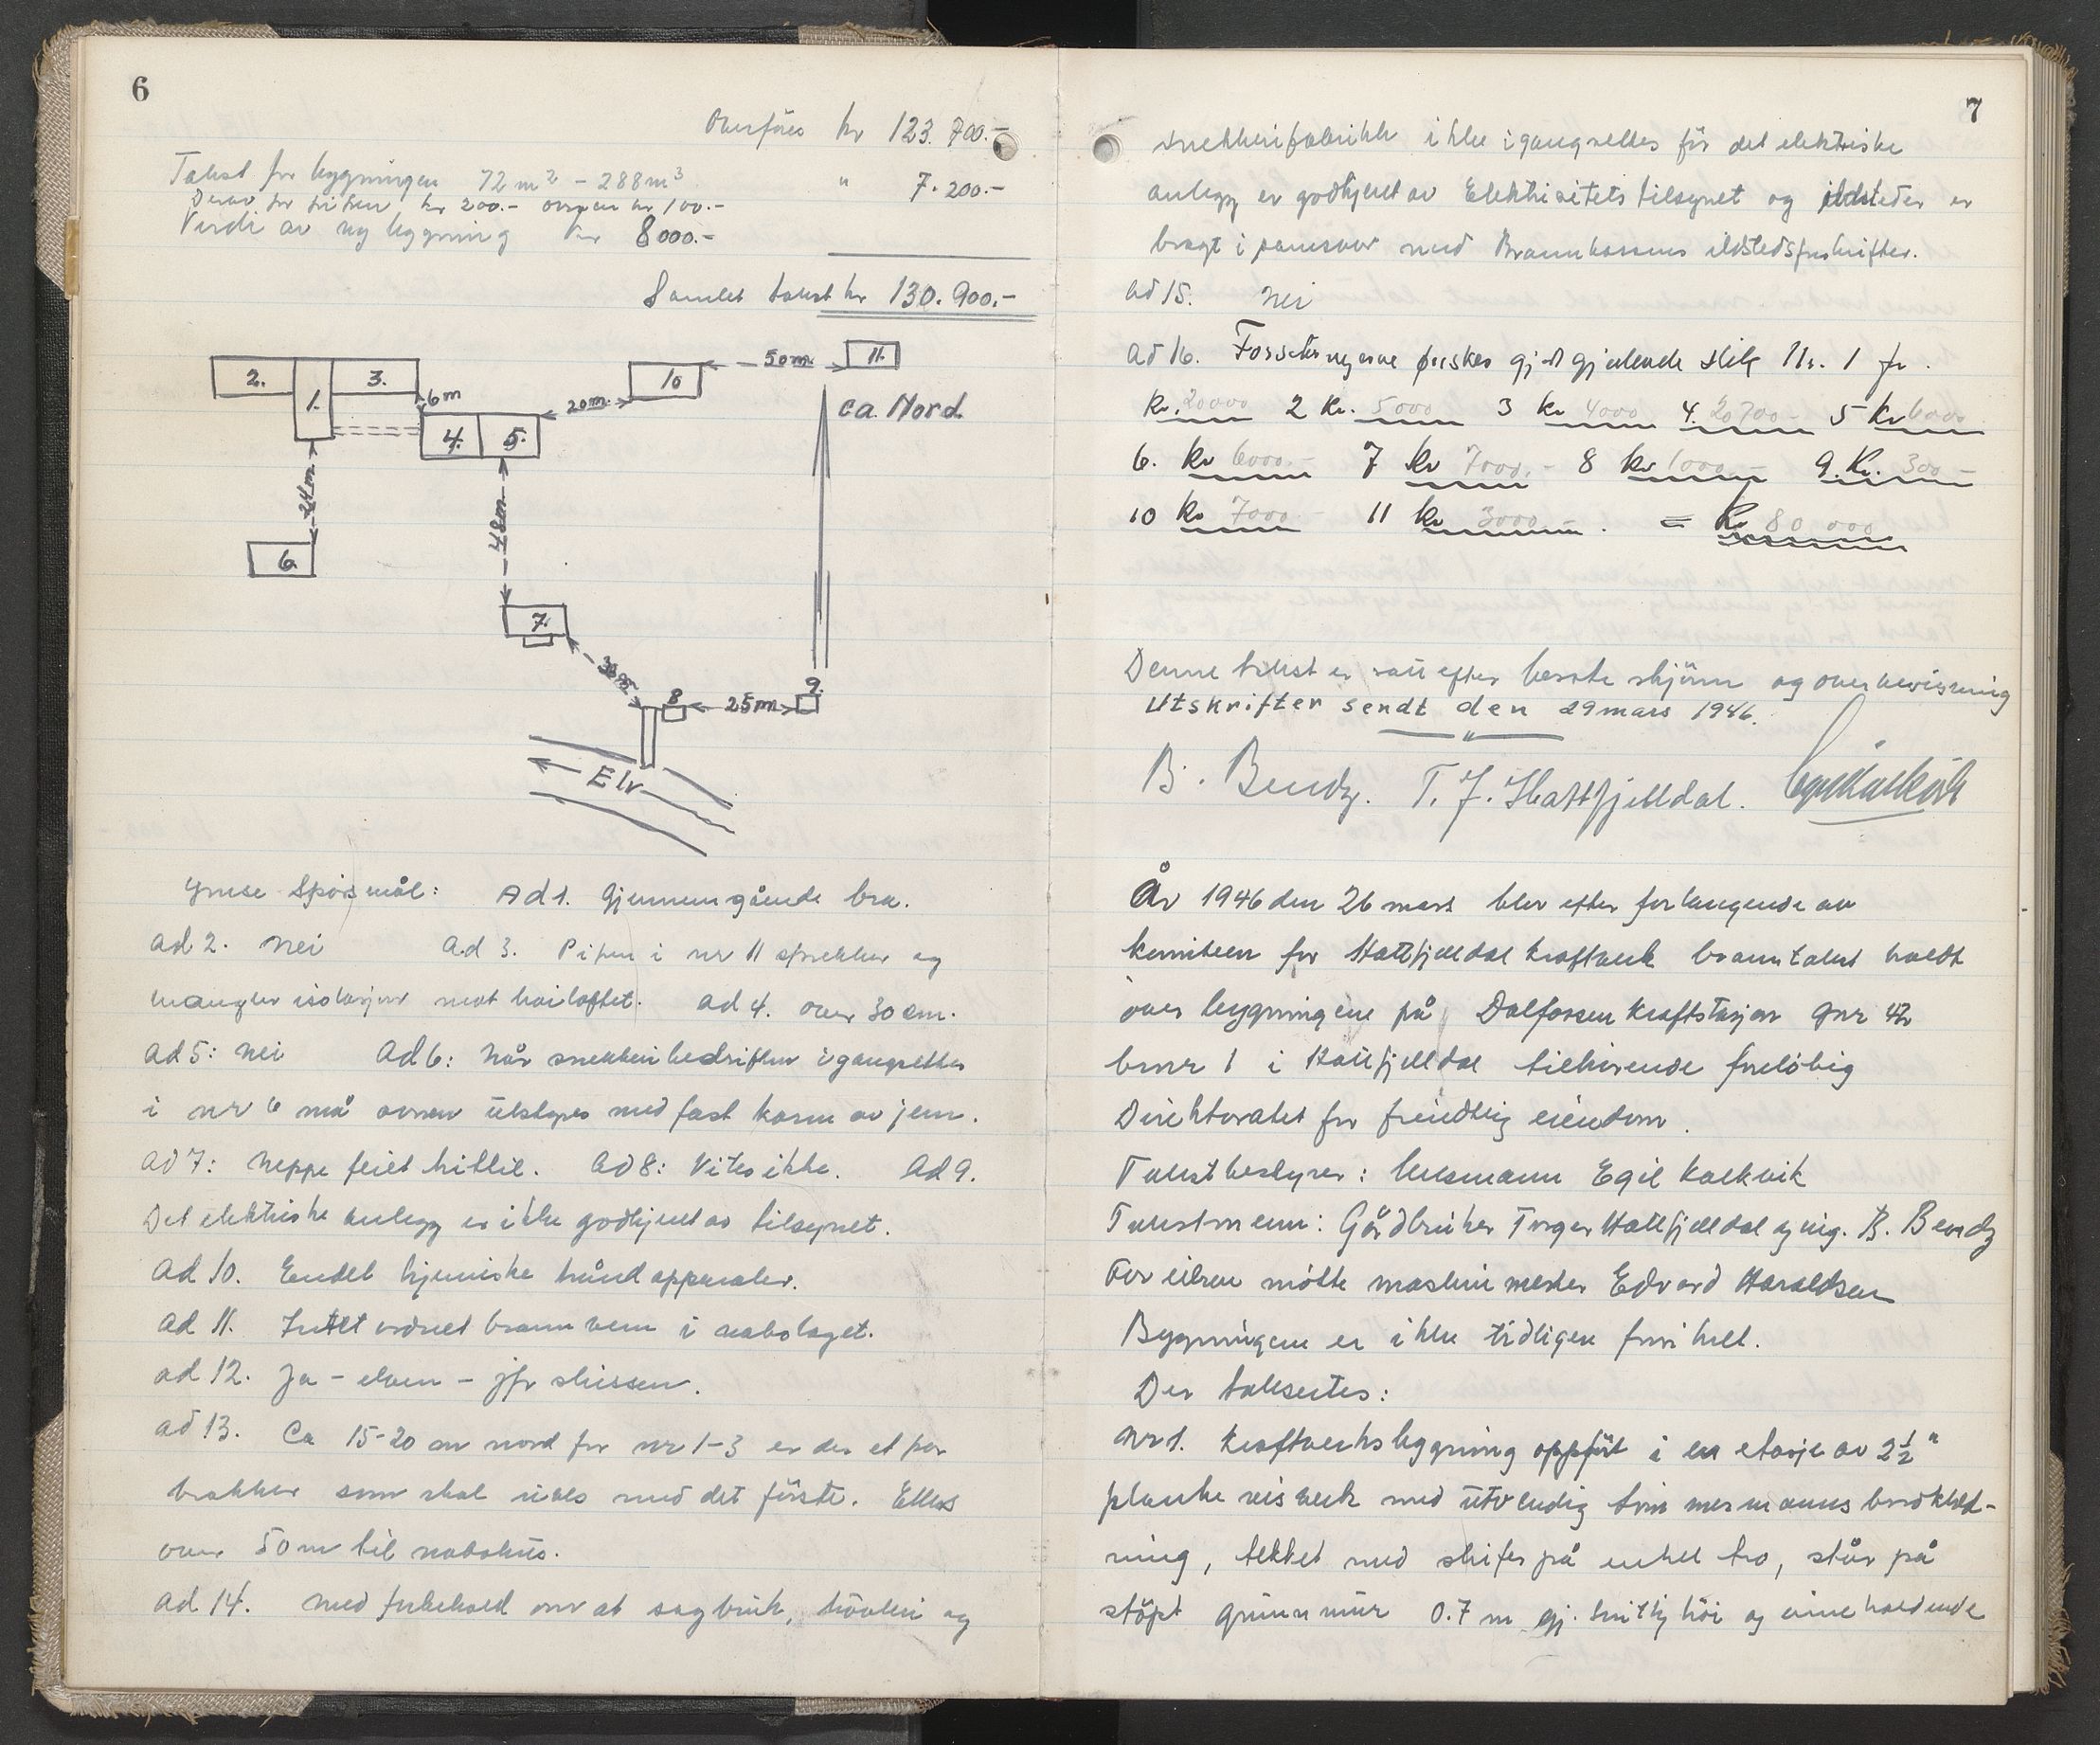 6
Overföres kr 123.700.-
Takst for bygningen 72 m² - 288 m³ " 7.200.-
Derav for piper kr 200.- ovnen kr 100.-
Verdi av ny bygning kr 8000.-
Samlet takst kr 130.900.-
2. 1. 3. 6m 4. 5. 20m 10 50m 11.
ca. Nord
24m
48m
6
7.
30m
8 25m 9.
Elv
Ymse Spörsmål: Ad 1. Gjennemgående bra.
ad 2. Nei ad 3. Pipen i nr 11 sprekker og
mangler isolasjon mot höiloftet. ad 4. over 30 cm.
ad 5: Nei ad 6: Når snekkeribedriften igangsettes
i nr 6 må ovnen utstyres med fast karm av jern.
ad 7: Neppe feiet hittil. ad 8: Vites ikke. ad 9.
Det elektriske anlegg er ikke godkjent av tilsynet.
ad 10. Endel kjemiske håndapparater.
ad 11. Intet ordnet brannvern i nabolaget.
ad 12. Ja - elven - jfr skissen.
ad 13. Ca 15-20 m nord for nr 1-3 er der et par
brakker som skal rives med det förste. Ellers
over 50 m til nabohus.
ad 14. Med forbehold om at sagbruk, hövleri og
7
snekkerifabrikk ikke igangsettes för det elektriske
anlegg er godkjent av Elektrisitetstilsynet og ildsteder er
bragt i samsvar med Brannkassens ildstedsforskrifter.
ad 15. Nei
ad 16. Forsikringerne ønskes gjort gjeldende slik Nr. 1 for
kr. 20000 2 kr. 5000 3 kr 4000 4. 20700- 5 kr 6000
6. kr 6000.- 7 kr 7000.- 8 kr 1000.- 9. kr. 300-
10 kr 7000- 11 kr 3000-. = kr 80 000
Denne takst er satt efter beste skjönn og overbevisning
Utskrifter sendt den 29 mars 1946.
B. Bendz. T. J. Hattfjelldal. Egil Kalkvik
År 1946 den 26 mars blev efter forlangende av
komiteen for Hattfjelldal kraftverk branntakst holdt
över bygningene på Dalfossen kraftstasjon gnr 42
bnr 1 i Hattfjelldal tilhörende forelöbig
Direktoratet for fiendtlig eiendom.
Takstbestyrer: lensmann Egil Kalkvik
Takstmenn: Gårdbruker Torger Hattfjelldal og ing. B. Bendz
For eieren mötte maskinmester Edvard Haraldsen
Bygningene er ikke tidligere forsikret.
Der takseres:
Nr 1. Kraftverksbygning oppfört i en etasje av 2½"
planke reisverk med utvendig timmermanns bordkled-
ning, tekket med skifer på enkel tro, står på
stöpt grunnmur 0.7 m gj. snittlig höi og inneholdende